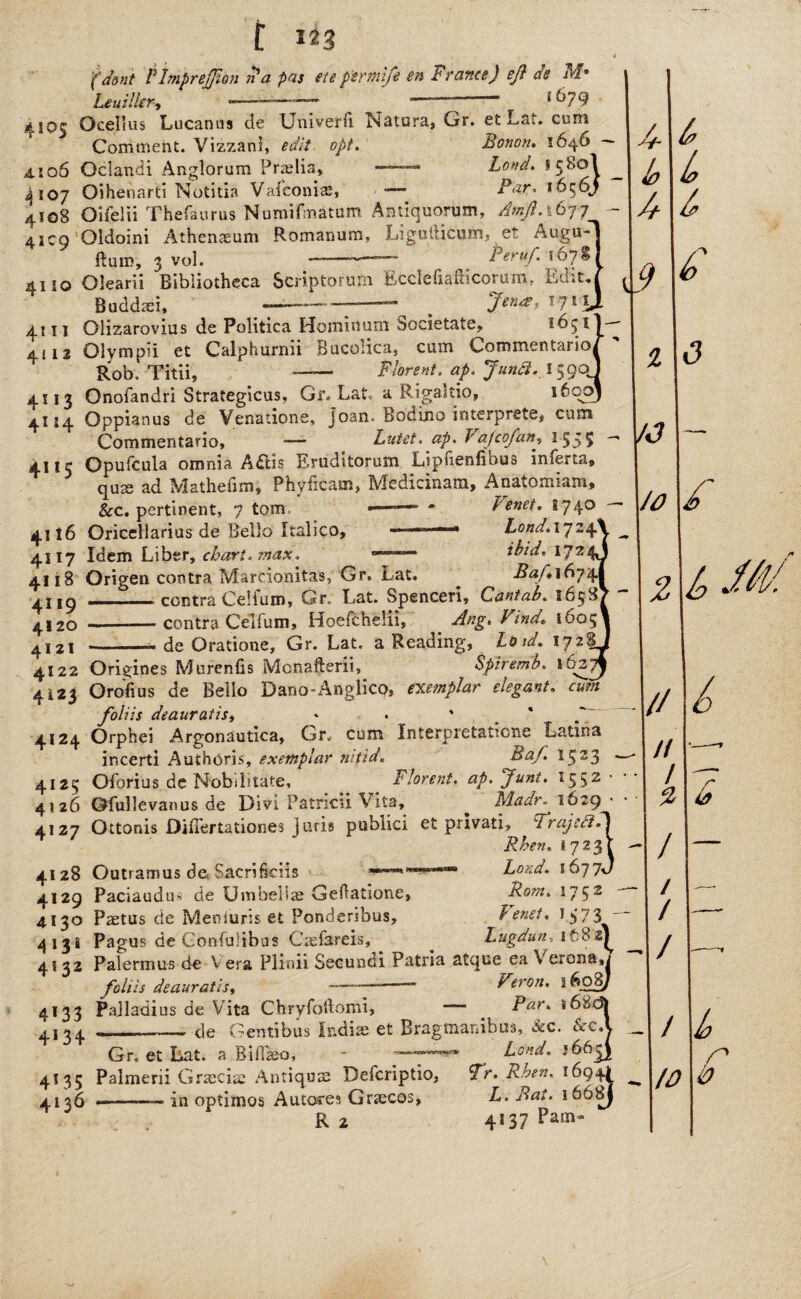 [ 123
(dont l'Impreſſion n'a pas ete permiſe en France) eſt de M•
Leuiller, ——— 1679
4105 Ocellus Lucanus de Univerſi Natura, Gr. et Lat. cum
Comment. Vizzani, edit opt. Bonon. 1646 —
4106 Oclandi Anglorum Prælia, —— Lond. 1580
4107 Oihenarti Notitia Vaſconiæ, —— Par. 1656
4108 Oiſelii Theſaurus Numiſmatum Antiquorum, Amſt. 1677 —
4109 Oldoini Athenæum Romanum, Liguſticum, et Auguſtum, 3 vol.
——— Peruſ. 1678
4110 Olearii Bibliotheca Scriptorum Eccleſiaſticorum, Edit.
Buddæi, ——— Jenæ, 1711
4111 Olizarovius de Politica Hominum Societate, 1651 —
4112 Olympii et Calphurnii Bucolica, cum Commentario
Rob. Titii, —— Florent. ap. Junct. 1590
4113 Onoſandri Strategicus, Gr. Lat. a Rigaltio, 1600
4114 Oppianus de Venatione, Joan. Bodino interprete, cum
Commentario, — Lutet. ap. Vaſcoſan, 1555 —
4115 Opuſcula omnia Actis Eruditorum Lipſienſibus inſerta,
quæ ad Matheſim, Phyſicam, Medicinam, Anatomiam,
&c. pertinent, 7 tom. —— Venet. 1740 —
4116 Oricellarius de Bello Italico, —— Lond. 1724
4117 Idem Liber, chart. max. —— ibid. 1724
4118 Origen contra Marcionitas, Gr. Lat. Baſ. 1674
4119 —— contra Celſum, Gr. Lat. Spenceri, Cantab. 1658 —
4120 —— contra Celſum, Hoeſchelii, Aug. Vind. 1605
4121 —— de Oratione, Gr. Lat. a Reading, Lond. 1728
4122 Origines Murenſis Monaſterii, Spiremb. 1627
4123 Oroſius de Bello Dano-Anglico, exemplar elegant. cum
foliis deauratis,
4124 Orphei Argonautica, Gr. cum Interpretatione Latina
incerti Authòris, exemplar nitid. Baſ. 1523 —
4125 Oſorius de Nobilitate, Florent. ap. Junt. 1552
4126 Oſullevanus de Divi Patricii Vita, Madr. 1629
4127 Ottonis Diſſertationes Juris publici et privati, Traject.
Rhen. 1723 —
4128 Outramus de Sacrificiis —— Lond. 1677
4129 Paciaudus de Umbellæ Geſtatione, Rom. 1752 —
4130 Pætus de Menſuris et Ponderibus, Venet. 1573 —
4131 Pagus de Conſulibus Cæſareis, Lugdun, 1682
4132 Palermus de Vera Plinii Secundi Patria atque ea Verona,
foliis deauratis, —— Veron. 1608
4133 Palladius de Vita Chryſoſtomi, — Par. 1680
4134 —— de Gentibus Indiæ et Bragmanibus, &c. &c.
Gr. et Lat. a Biſſæo, —— Lond. 1665
4135 Palmerii Græciæ Antiquæ Deſcriptio, Tr. Rhen. 1694
4136 —— in optimos Autores Græcos, L. Bat. 1668
R 2 4137 Pam-